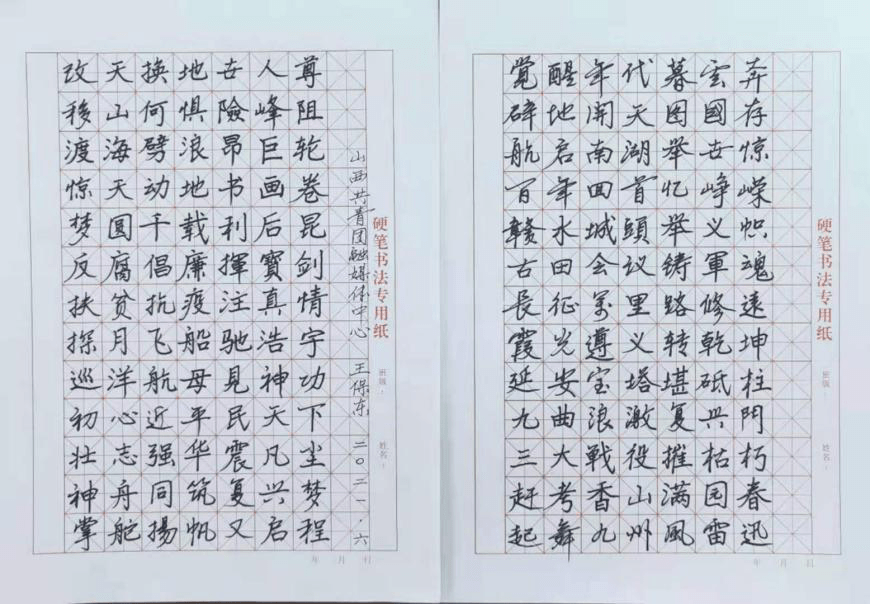 硬笔书法专用纸
班级：
姓名：
覺醒年代暮雲奔
碎地開天图國存
航启南湖举世惊
百年回首忆峥嵘
赣水城頭举义帜
古田会议铸軍魂
長征萬里路修遠
霞光遵义转乾坤
延安宝塔堪砥柱
九曲浪激复兴門
三大戰役摧枯朽
赶考香山满园春
起舞九州風雷迅
年 月 日
硬笔书法专用纸
班级：
姓名：
改天換地世人尊
移山何惧險峰阻
渡海劈浪昂巨轮
惊天动地书画卷
梦圆千载利后昆
反腐倡廉揮寶剑
扶贫抗疫注真情
探月飞船驰浩宇
巡洋航母見神功
初心近平民天下
壮志强华震凡尘
神舟同筑复兴梦
掌舵揚帆又启程
山西共青团融媒体中心 王保东 二〇二一.六
年 月 日